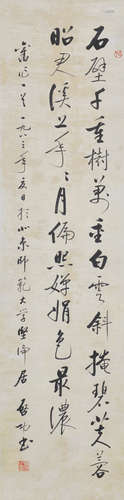 石壁千重樹萬重白雲斜掩碧芙蓉
昭君溪上年々月偏照嬋娟色最濃
一九八三年夏日於北京師範大学堅净居 啓功書